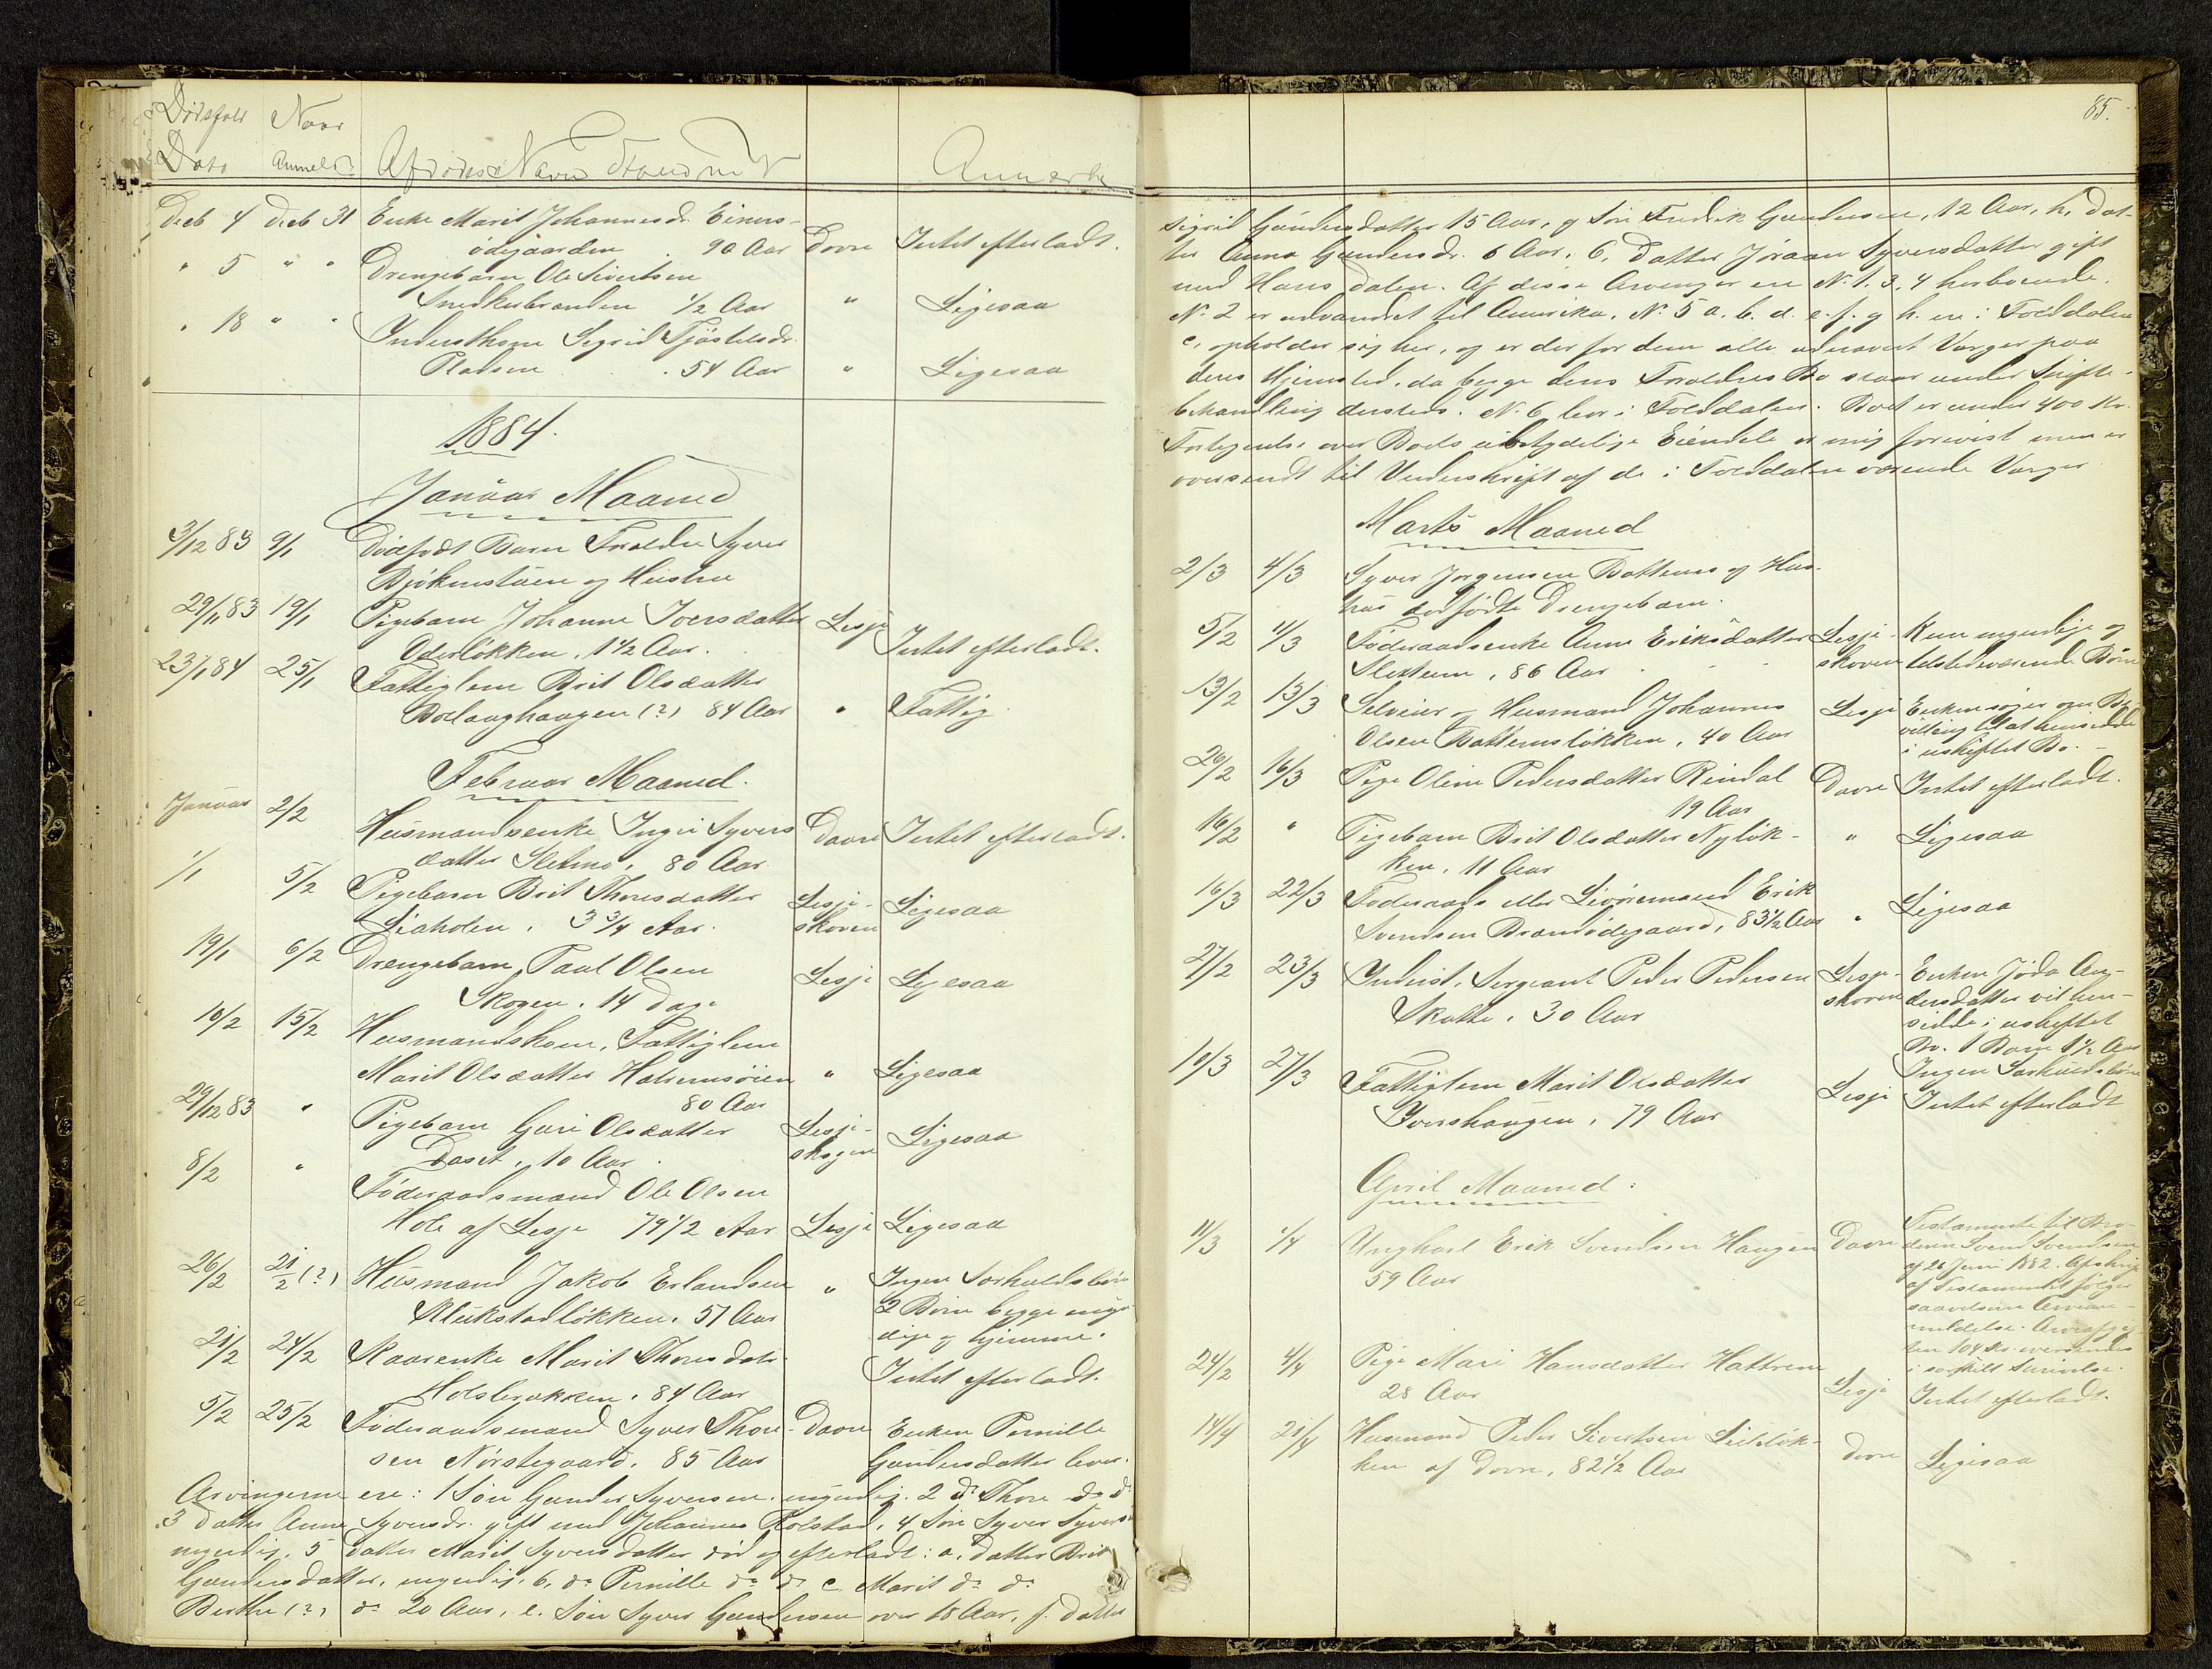 Dødsfald Naar
Dato Anmeldt Afdødes Navn Stand m V Anmærkn
Decb 4 Decb 31 Enke Marit Johannesdr. Einers-
ødegaarden 90 Aar Dovre Intet efterladt.
" 5 " " Drengebarn Ole Sivertsen
Snedkerbranden 1/2 Aar " Ligesaa
" 18 " " Inderstkone Sigrid Tjøstelsdr.
Pladsen . . 54 Aar " Ligesaa
1884.
Januar Maaned
3/12 83 9/1 Dødfødt Barn Forældre Syver
Bjøkenstuen og Hustru
29/11 83 19/1 Pigebarn Johanne Iversdatter Lesje
Oderløkken, 1 1/2 Aar. Intet efterladt.
23/1 84 25/1 Fattiglem Brit Olsdatter
Bolaaghaugen (?) 84 Aar " Fattig
Februar Maaned.
Januar 2/2 Husmandsenke Ingri Syvers Dovre Intet efterladt.
datter Sletmo, 80 Aar
1/1 5/2 Pigebarn Brit Thoresdatter Lesje- Ligesaa
Liaholen, 3 3/4 Aar. skoven
19/1 6/2 Drengebarn Paul Olsen Lesje Ligesaa
Skogen. 14 Dage
10/2 15/2 Husmandskone, Fattiglem
Marit Olsdatter Holsemsøien " Ligesaa
80 Aar
29/12 83 " Pigebarn Guri Olsdatter Lesje- Ligesaa
Daset, 10 Aar. skogen
8/2 " Føderaadsmand Ole Olsen
Hole af Lesje 79 1/2 Aar Lesje Ligesaa
26/2 21/2 (?) Husmand Jakob Erlandsen " Ingen Særkuldsbørn
Klukstadløkken. 51 Aar 2 Børn begge myn-
dige og hjemme.
21/2 24/2 Kaarenke Marit Thoresdatr Intet efterladt.
Holsbrækken. 84 Aar
5/2 25/2 Føderaadsmand Syver Thore- Dovre Enken Pernille
sen Nørstegaard. 85 Aar Gundersdatter lever.
Arvingerne ere: 1 Søn Gunder Syversen, myndig. 2 do Thore do do
3 Datter Anne Syversdr. gift med Johannes Rolstad, 4 Søn Syver Syvers
myndig. 5 Datter Marit Syversdatter død og efterladt: a. Datter Brit
Gundersdatter, myndig. b. do Pernille do do c. Marit do do
Berthe (?), do 20 Aar, e. Søn Syver Gundersen over 18 Aar, f. Datter
85.
Sigrid Gundersdatter 15 Aar, g Søn Fredrik Gundersen, 12 Aar, h. Dat-
ter Anna Gundersdr. 6 Aar. 6. Datter Jøraan Syversdatter gift
med Hans Dalen. Af disse Arvinger ere No 1. 3. 4 herboende.
No 2 er udvandret til Amerika. No 5 a. b. d. e. f. g h. ere i Folddalen
c. opholder sig her, og er der for dem alle udnævnt Verger paa
deres Hjemsted, da begge deres Forældres Bo staar under Skifte-
behandling dersteds. No 6 bor i Folddalen. Boet er under 400 Kr.
Fortegnelse over Boets ubetydelige Eiendele er mig forevist men er
oversendt til Underskrift af de i Folddalen værende Verger
Marts Maaned
2/3 4/3 Syver Jørgensen Bottems og Hus-
trus dødfødte Drengebarn.
5/2 11/3 Føderaadsenke Anne Eriksdatter Lesje- Kun myndige og
Slettum, 86 Aar skoven tilstedeværende Børn
13/2 13/3 Selveier og Husmand Johannes Lesje Enken søger om Be-
Olsen Bottemsløkken, 40 Aar villing til at hensidde
i uskiftet Bo.
26/2 16/3 Pige Oline Pedersdatter Rindal Dovre Intet efterladt.
19 Aar
16/2 " Pigebarn Brit Olsdatter Nyløk- " Ligesaa
ken, 11 Aar
16/3 22/3 Føderaads eller Livøremand Erik
Svendsen Brændødegaard, 83 1/2 Aar " Ligesaa
27/2 23/3 Inderst, Sergeant Peder Pedersen Lesje- Enken Jøda An-
Skotte. 30 Aar skoven dersdatter vil hen-
sidde i uskiftet
Bo. 1 Barn 1 1/2 Aar
Ingen Særkuldsbørn
19/3 27/3 Fattiglem Marit Olsdatter Lesje Intet efterladt
Ivershaugen, 79 Aar
April Maaned.
11/3 1/4 Ungkarl Erik Svendsen Haugen Dovre Testamente til Bro-
59 Aar deren Svend Svendsen
af 26 Juni 1882. Afskrift
af Testamentet følger
saavelsom Arvean-
meldelse. Arveafgif-
ten 104 Kr. oversendes
i særskilt Skrivelse.
24/2 4/4 Pige Mari Hansdatter Hattrem
28 Aar Lesje Intet efterladt.
14/4 21/4 Husmand Peder Sivertsen Lilleløk- Dovre Ligesaa
ken af Dovre, 82 1/2 Aar